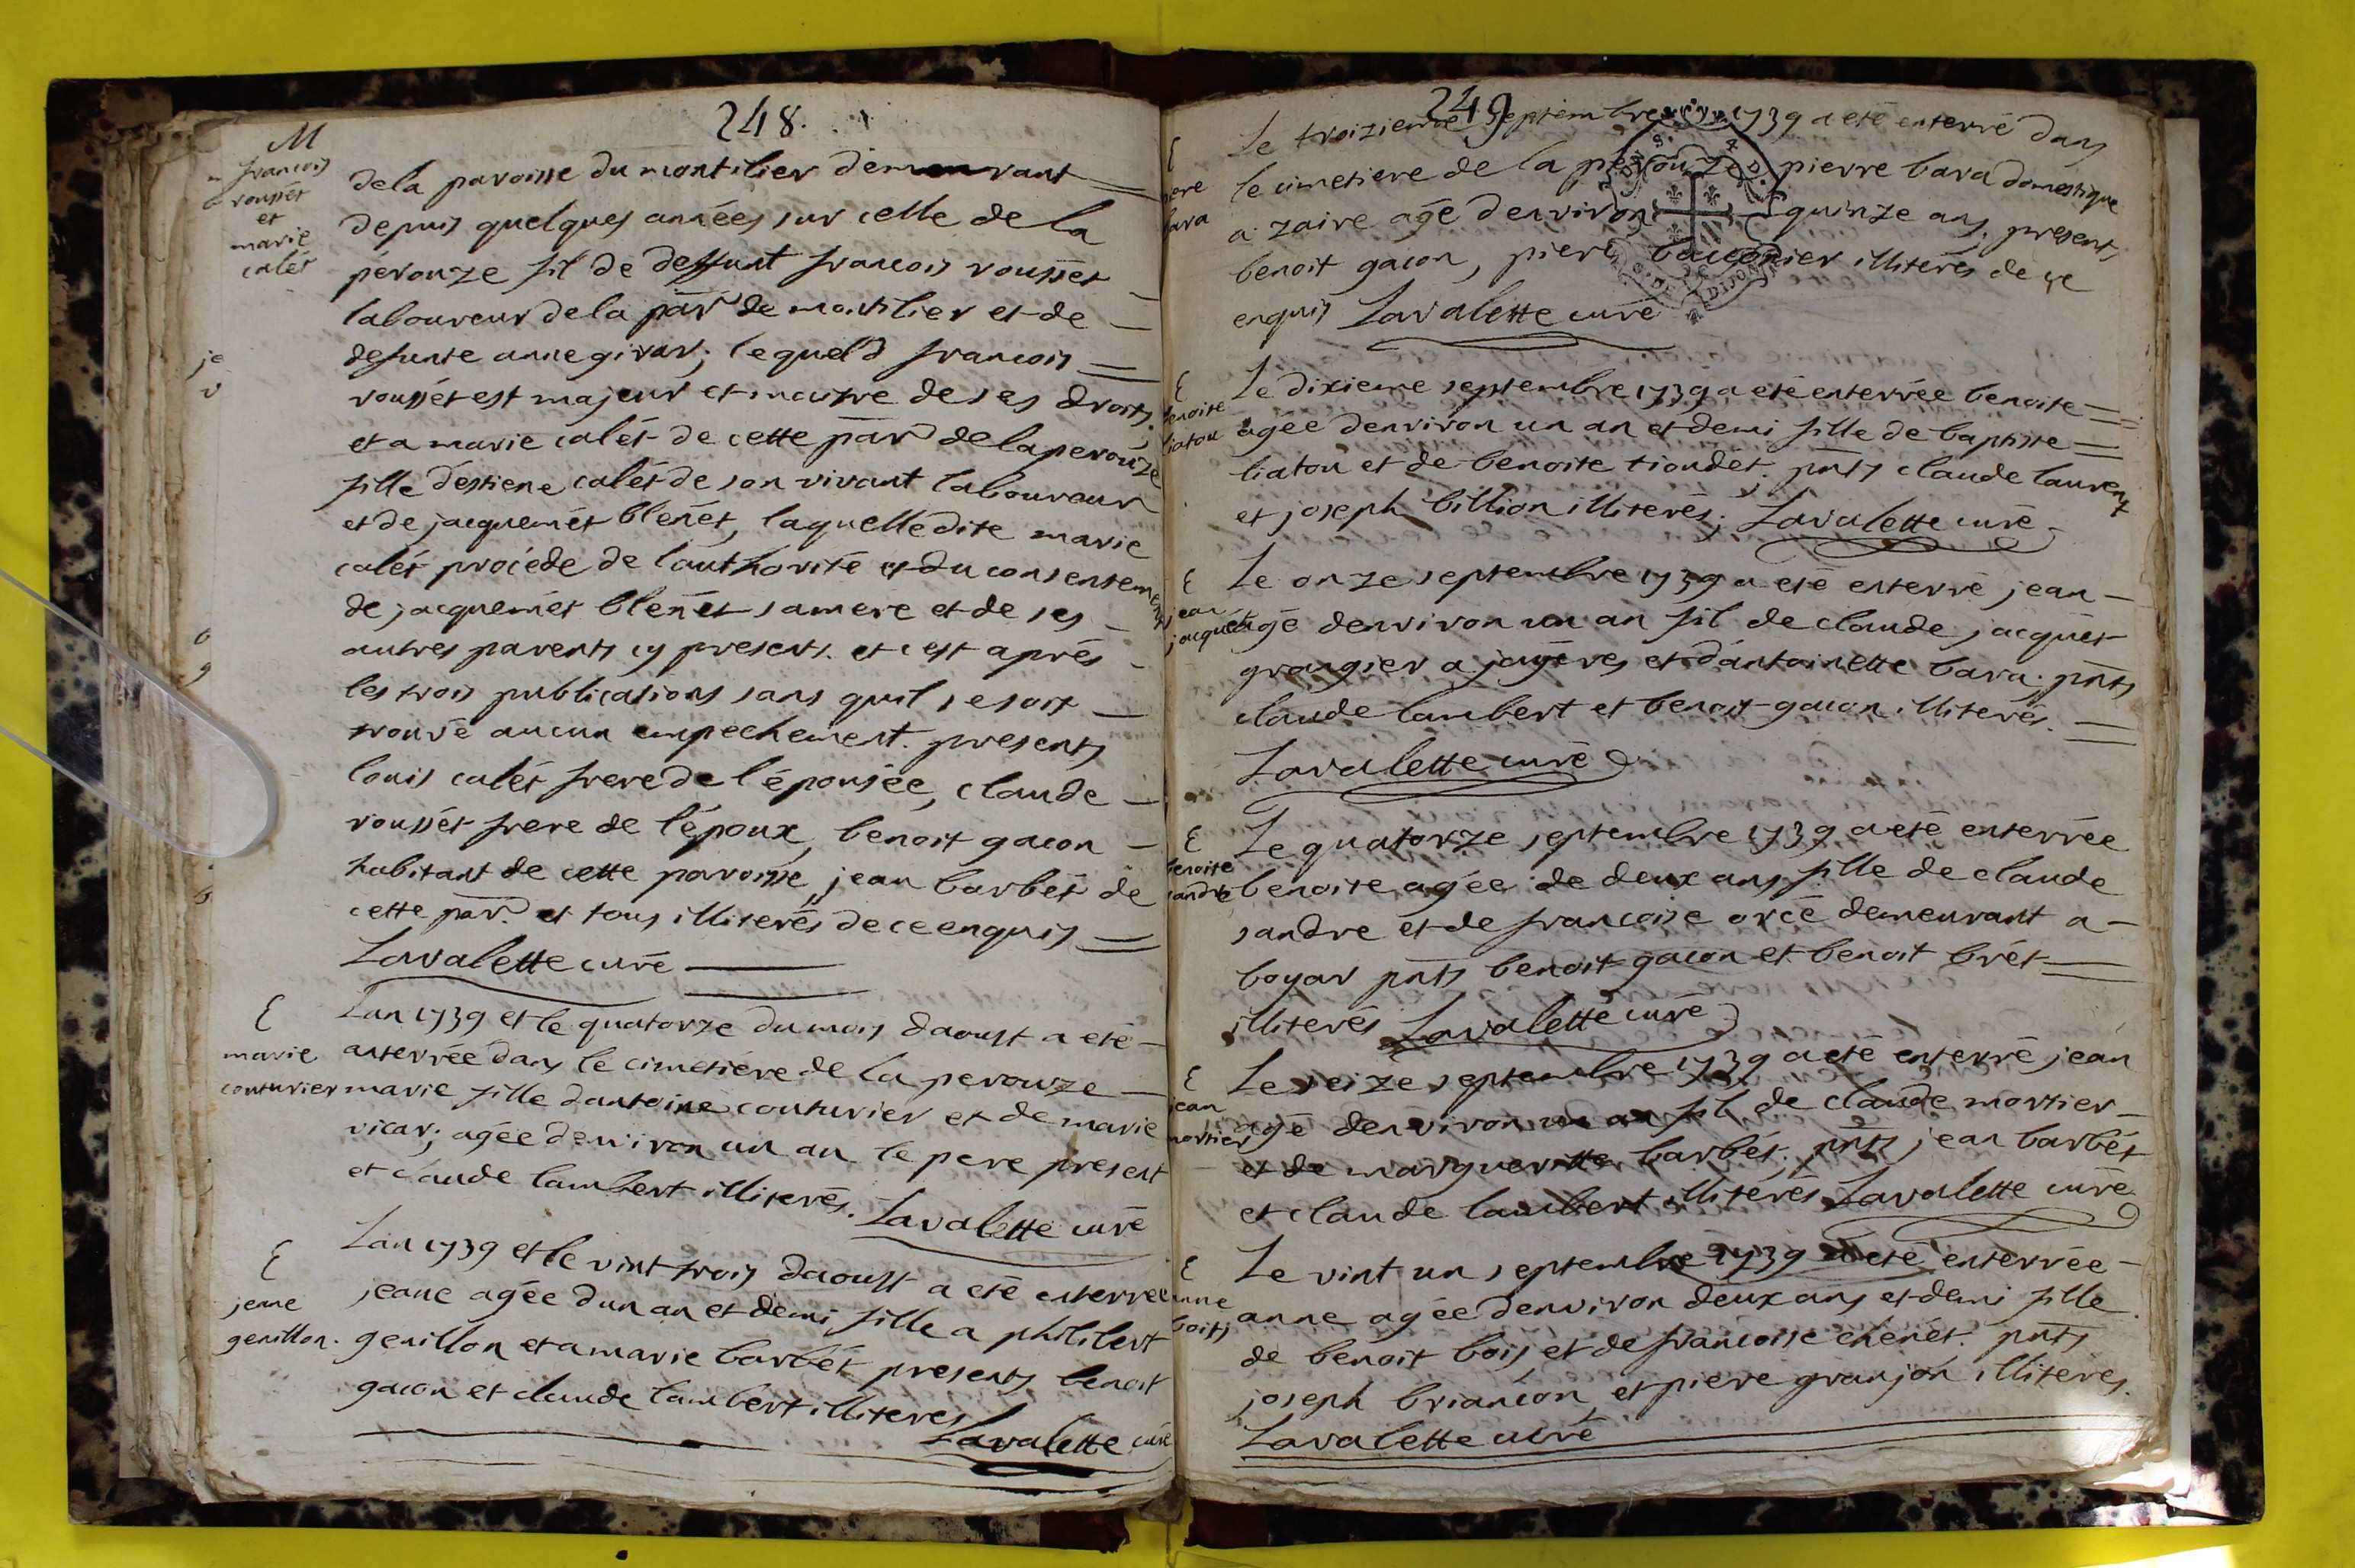 248.
M
francois
roussét
et
marie
calét
de la paroisse du montilier demeurant
depuis quelques années sur celle de la
pérouze fil de deffunt francois roussét
laboureur de la par de montilier et de
defunte anne girar; lequel d francois
roussét est majeur et maitre de ses droits.
et a marie calét de cette par de la perouze
fille destiene calét de son vivant laboureur
et de jacquemét blenét, laquelle dite marie
calét procéde de lauthorité et du consentement
de jacquemét blenét sa mere et de ses
autres parents cy presents. et cest aprés
les trois publications sans quil se soit
trouvé aucun empechement. presents
louis calét frere de l'épousée, claude
roussét frere de l'époux, benoit gacon
habitant de cette paroisse, jean barbét de
cette par. et tous illiterés de ce enquis
Lavalette curé
E
marie
couturier
Lan 1739 et le quatorze du mois daoust a eté
anterrée dans le cimetiére de la perouze
marie fille dantoine couturier et de marie
vicar; agée denviron un an le pere present
et claude lambert illiterés. Lavalette curé
E
jeane
genillon.
Lan 1739 et le vint trois daoust a eté enterrée
jeane agée dun an et demi fille a philibert
genillon et a marie barbét presents benoit
gacon et claude lambert illiteres
Lavalette curé
249
E
bara
Le troizieme septembre 1739 a eté enterré dans
le cimetiere de la perouze pierre bara domestique
a zaire agé denviron quinze ans. presents
benoit gacon, piere bouconier illiterés de ce
enquis Lavalette curé
E
benoite
liatou
Le dixieme septembre 1739 a eté enterrée benoite
agée denviron un an et demi fille de baptiste
liatou et de benoite tiondét. pnts claude laurent
et joseph billion illiterés; Lavalette curé
E
jean
jacquét
Le onze septembre 1739 a eté enterré jean
agé denviron un an fil de claude jacquét
grangier a jayéres et dantoinette bara. pnts
claude lambert et benoit gacon illiterés.
Lavalette curé
E
benoite
sandre
Le quatorze septembre 1739 a eté enterrée
benoite agée de deux ans fille de claude
sandre et de francoise orcé demeurant a
boyar pnts benoit gacon et benoit brét
illiterés Lavalette curé
E
jean
mortier
Le seize septembre 1739 a eté enterré jean
agé denviron un an fil de claude mortier
et de margueritte barbét. pnts jean barbét
et claude lambert illiterés Lavalette curé
E
anne
bois
Le vint un septembre 1739 a eté enterrée
anne agée denviron deux ans et demi fille
de benoit bois et de francoise chenét. pnts
joseph briancon et piere granjon illiteres.
Lavalette curé